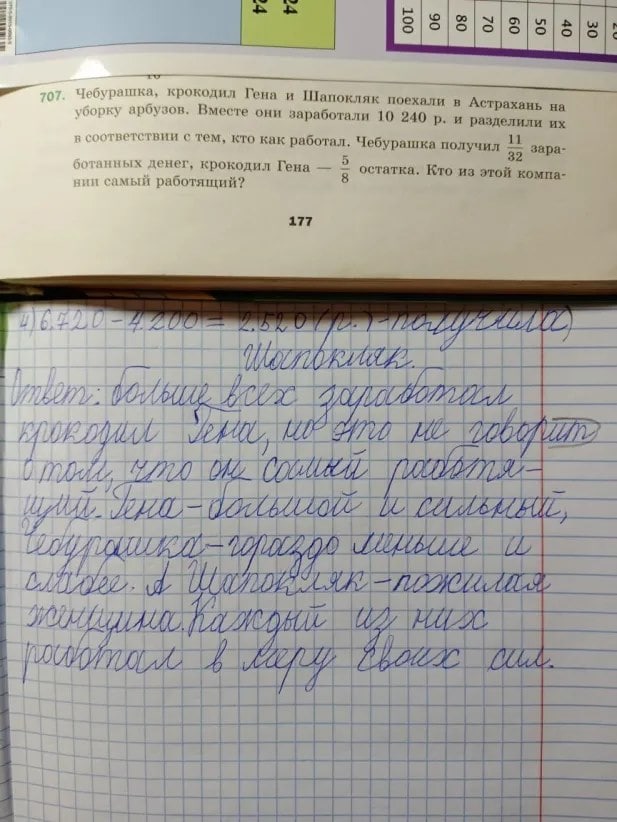 24
24
100
90
80
70
60
50
40
30
707. Чебурашка, крокодил Гена и Шапокляк поехали в Астрахань на
уборку арбузов. Вместе они заработали 10 240 р. и разделили их
в соответствии с тем, кто как работал. Чебурашка получил 11/32 зара-
ботанных денег, крокодил Гена — 5/8 остатка. Кто из этой компа-
нии самый работящий?
177
4) 6.720 - 4.200 = 2.520 (р.) - получила)
Шапокляк.
Ответ: больше всех заработал
крокодил Гена, но это не говорит
о том, что он самый работя-
щий. Гена - большой и сильный,
Чебурашка - гораздо меньше и
слабее. А Шапокляк - пожилая
женщина. Каждый из них
работал в меру своих сил.